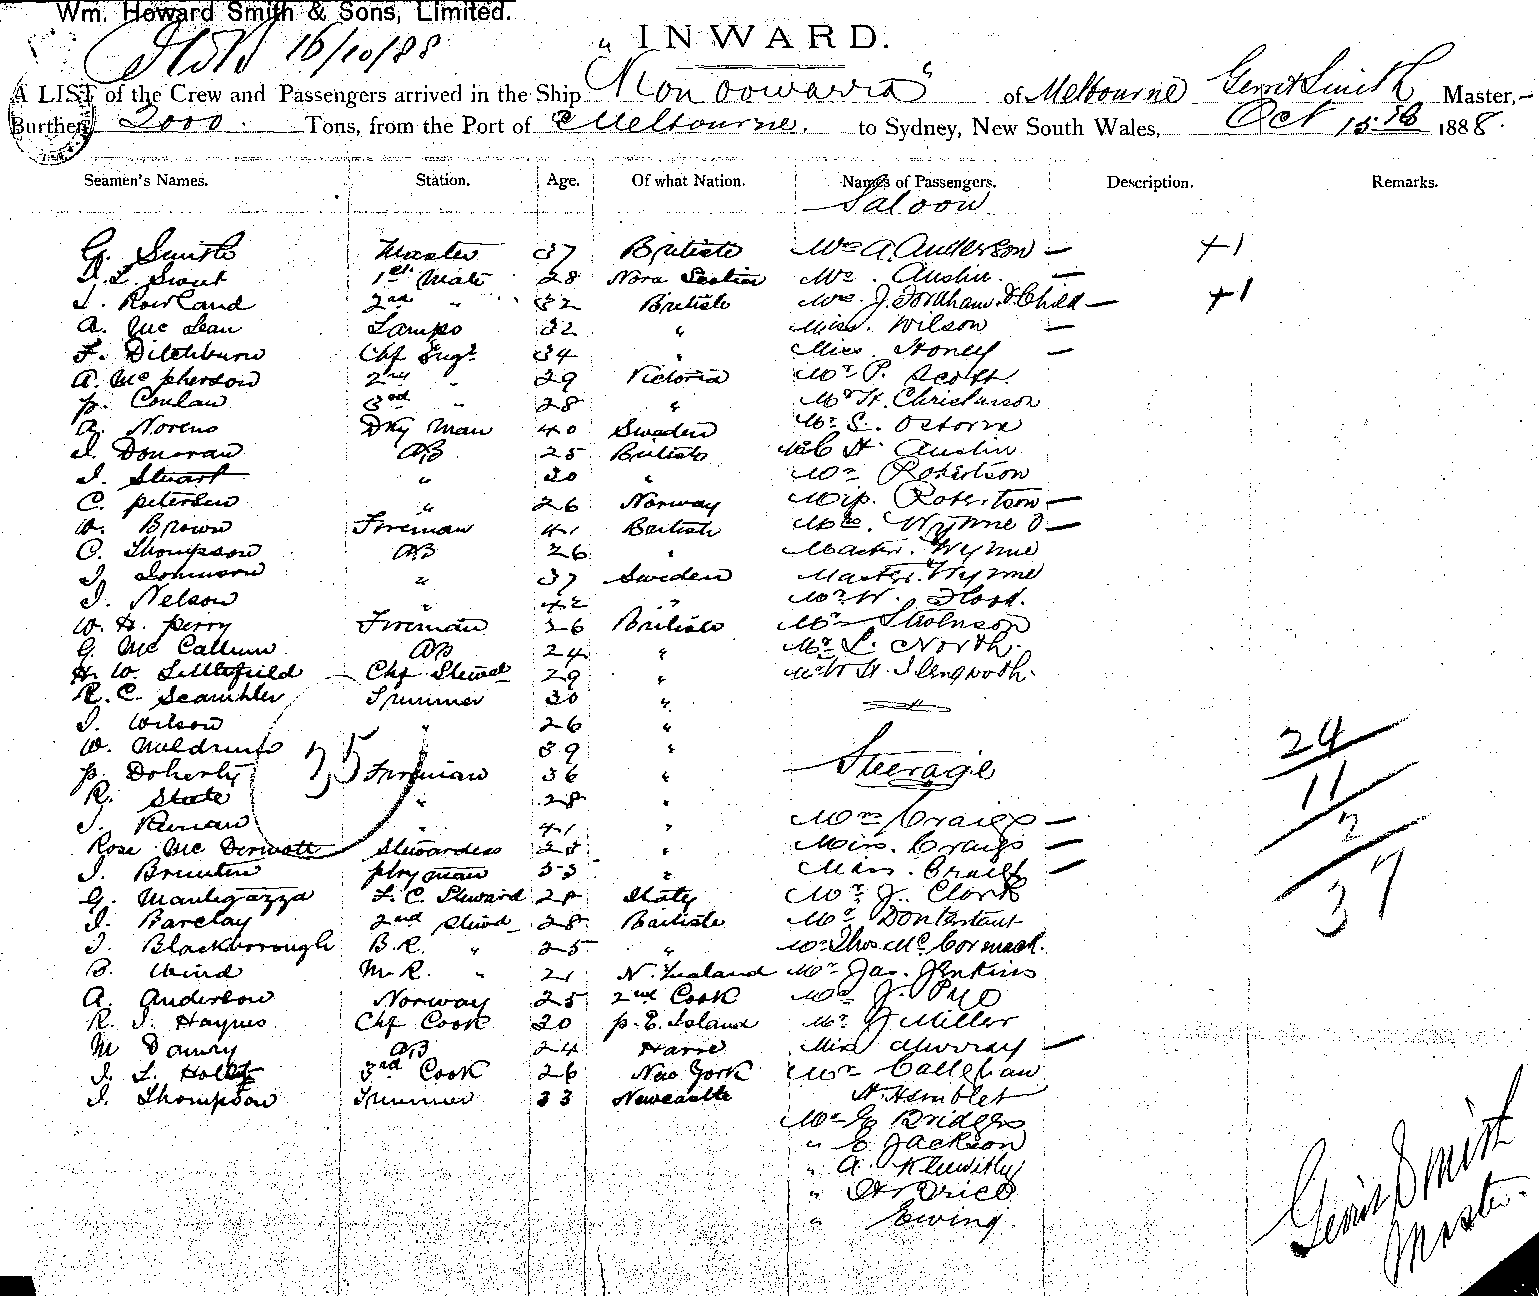 Wm. Howard Smith & Sons, Limited.
16/10/88
" INWARD.
A LIST of the Crew and Passengers arrived in the Ship "Konoowarra" of Melbourne Gerrit Smith Master,
Burthen 2000 Tons, from the Port of Melbourne. to Sydney, New South Wales, Oct 15 16 1888.
Seamen's Names. Station. Age. Of what Nation. Names of Passengers. Description. Remarks.
Saloon
G. Smith Master 37 British Mrs A. Anderson — +1
L. 1st Mate 28 Nova Scotia Mrs. Austin. —
J. Rowland 2nd " 32 British Mrs. J. Fordham & Child — +1
A. McLean Lamps 32 " Miss. Wilson —
F. Ditchburn Chf Engr 34 " Miss. Honey —
A. McPherson 2nd " 29 Victoria Mr P. Scott.
P. Conlan 3rd " 28 " Mr H. Christianson
A. Norens Dky Man 40 Sweden Mr S. Osborn
J. Donovan AB 25 British H Austin
J. Stuart " 30 " Mr Robertson
C. Petersen " 26 Norway Miss. Robertson —
W. Brown Fireman 41 British Mrs. Wynne —
C. Thompson AB 26 " Master. Wynne
J. Johnson " 37 Sweden Master. Wynne
J. Nelson " 42 " Mr W. Flood.
W. H. Perry Fireman 26 British Mr
G. McCallum AB 24 " Mr L. North.
H. W. Littlefield Chf Steward 29 " Mr W H. Slengworth.
R. C. Scambler Trimmer 30 "
J. Wilson " 26 "
W. Meldrum " 39 "
Steerage
P. Doherty Fireman 36 "
R. State " 28 "
J. " 41 " Mrs Craigs —
Rose McDermott Stewardess 28 " Miss. Craigs —
J. Brunten Ptryman 33 " Miss. —
G. Mantegazza F. C. Steward 28 Italy Mr J. Clark
J. Barclay 2nd Stewd 28 British Mr
J. Blackborrough B.R. " 25 " Mr Thos McCormack.
B. Wind M.R. " 21 N. Zealand Mr Jas. Jenkins
A. Anderson Norway 25 2nd Cook Mr J. Pye
R. J. Haynes Chf Cook 20 P. E. Island Mr J Miller
M AB 24 Havre Miss Murray —
J. L. Holst 3rd Cook 26 New York Mr Callghan
J. Thompson Trimmer 33 Newcastle H. Hamblet
Mr G Bridges
" E Jackson
" A.
" H Price
" Ewing.
35
24
11
2
37
Gerrit Smith
Master.